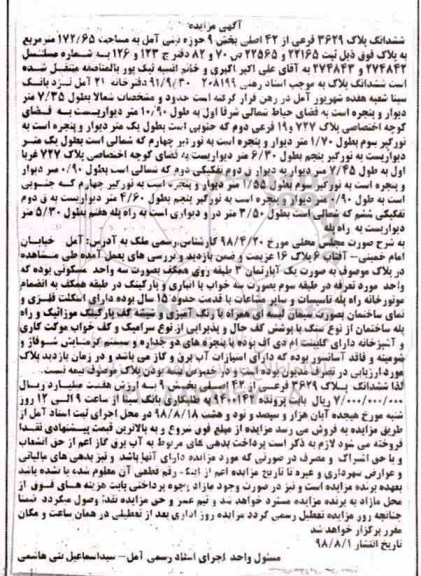 آگهی مزایده
ششدانگ پلاک ۳۶۲۹ فرعی از ۴۲ اصلی بخش ۹ حوزه ثبتی آمل به مساحت ۱۷۲/۶۵ متر مربع
به پلاک فوق ذیل ثبت ۲۲۱۶۵ و ۲۲۵۶۵ ص ۷۰ و ۸۲ دفتر ج ۱۲۳ و ۱۲۶ به شماره مسلسل
۲۷۴۸۴۲ و ۲۷۴۸۴۳ به آقای علی اکبر اکبری و خانم انسیه نیک پور بالمناصفه منتقل شده
است ششدانگ پلاک به موجب اسناد رهنی ۲۰۸۱۹۹ - ۹۱/۹/۳۰ دفترخانه ۲۱ آمل نزد بانک
سینا شعبه هفده شهریور آمل در رهن قرار گرفته است حدود و مشخصات شمالا بطول ۷/۳۵ متر
دیوار و پنجره است به فضای حیاط مشاعی شرقا اول به طول ۱۰/۹۰ متر دیواریست به فضای
کوچه اختصاصی پلاک ۷۲۷ و ۱۹ فرعی دوم که جنوبی است بطول یک متر دیوار و پنجره است به
نورگیر سوم بطول ۱/۷۰ متر دیوار و پنجره است به نورگیر چهارم که شمالی است بطول یک متر
دیواریست به نورگیر پنجم بطول ۶/۳۰ متر دیواریست به فضای کوچه اختصاصی پلاک ۷۲۷ غربا
اول به طول ۷/۴۵ متر دیوار به دیوار ن دوم تفکیکی دوم که شمالی است بطول ۰/۹۰ متر دیوار
و پنجره است به نورگیر سوم بطول ۱/۵۵ متر دیوار و پنجره است به نورگیر چهارم که جنوبی
است به طول ۰/۹۰ متر دیوار و پنجره است به نورگیر پنجم بطول ۴/۶۰ متر دیواریست به ن دوم
تفکیکی ششم که شمالی است بطول ۳/۵۰ متر در و دیواری است به راه پله هفتم بطول ۵/۳۰ متر
دیواریست به راه پله
به شرح صورت مجلس محلی مورخ ۹۸/۴/۲۰ کارشناس رسمی ملک به آدرس: آمل خیابان
امام خمینی - آفتاب ۶ پلاک ۱۶ عزیمت و ضمن بازدید و بررسی های بعمل آمده طی مشاهده
در پلاک موصوف به صورت یک آپارتمان ۳ طبقه روی همکف بصورت سه واحد مسکونی بوده که
واحد مورد تعرفه در طبقه سوم بصورت سه خواب با انباری و پارکینگ در طبقه همکف به انضمام
موتورخانه راه پله تاسیسات و سایر مشاعات با قدمت حدود ۱۵ سال بوده دارای اسکلت فلزی و
نمای ساختمان بصورت سیمان لبه ای همراه با رنگ آمیزی و شیشه کف پارکینگ موزائیک و راه
پله ساختمان از نوع سنگ با پوشش کف حال و پذیرایی از نوع سرامیک و کف خواب موکت کاری
و آشپزخانه دارای کابینت ام دی اف بوده با پنجره های دو جداره و سیستم گرمایش شوفاژ و
شومینه و فاقد آسانسور بوده که دارای امتیازات آب برق و گاز می باشد و در زمان بازدید پلاک
مورد ارزیابی در تصرف مدیون بوده است و در خصوص بیمه بودن پلاک موصوف بیمه نیست.
لذا ششدانگ پلاک ۳۶۲۹ فرعی از ۴۲ اصلی بخش ۹ به ارزش هفت میلیارد ریال
۷/۰۰۰/۰۰۰/۰۰۰ ریال بابت پرونده ۹۴۰۰۱۴۲ به طلبکاری بانک سینا از ساعت ۹ الی ۱۲ روز
شنبه مورخ هیجده آبان هزار و سیصد و نود و هشت ۹۸/۸/۱۸ در محل اجرای ثبت اسناد آمل از
طریق مزایده به فروش می رسد مزایده از مبلغ فوق شروع و به بالاترین قیمت پیشنهادی نقدا
فروخته می شود لازم به ذکر است پرداخت بدهی های مربوط به آب برق گاز اعم از حق انشعاب
و یا حق اشتراک و مصرف در صورتی که مورد مزایده دارای آنها باشد و نیز بدهی های مالیاتی
و عوارض شهرداری و غیره تا تاریخ مزایده اعم از اینکه رقم قطعی آن معلوم شده یا نشده باشد
بعهده برنده مزایده است و نیز در صورت وجود مازاد وجوه پرداختی بابت هزینه های فوق از
محل مازاد به برنده مزایده مسترد خواهد شد و نیم عشر و حق مزایده نقدا وصول میگردد ضمنا
چنانچه روز مزایده تعطیل رسمی گردد مزایده روز اداری بعد از تعطیلی در همان ساعت و مکان
مقرر برگزار خواهد شد
تاریخ انتشار ۹۸/۸/۱
مسئول واحد اجرای اسناد رسمی آمل - سیداسماعیل بنی هاشمی